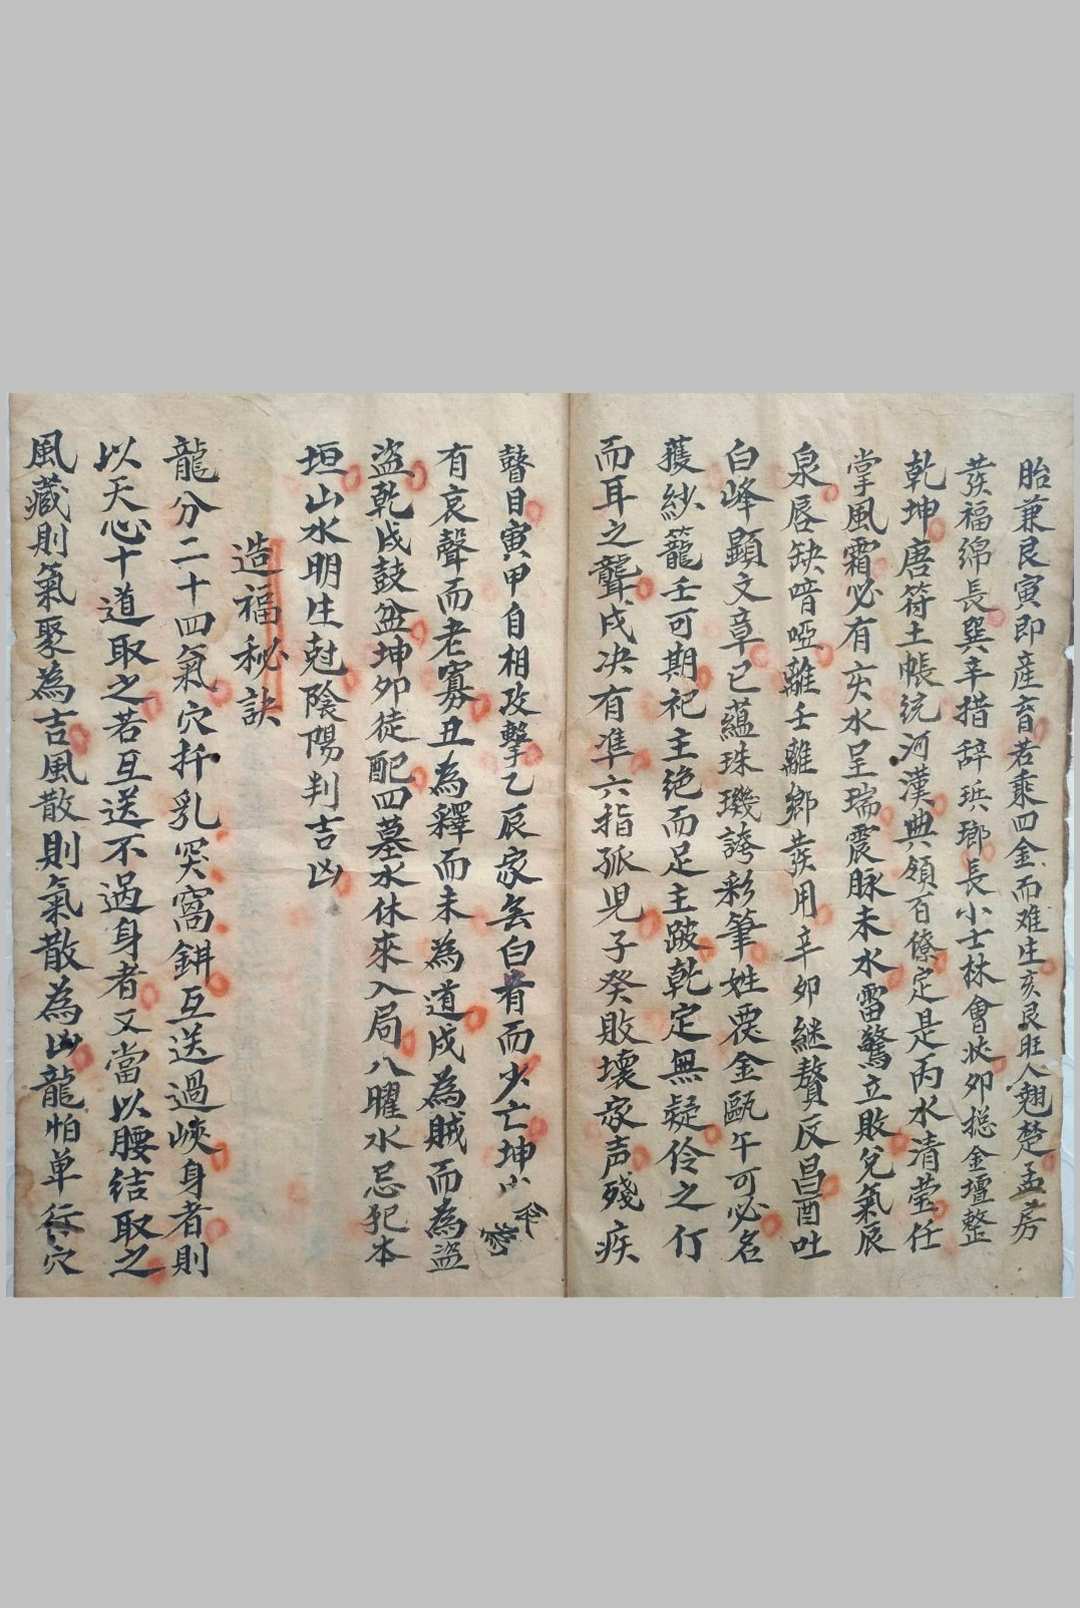 胎兼艮寅即產育若乘四金而难生亥艮旺人翹楚孟房
發福綿長巽辛措辞琅長小士林會狀卯摠金壇整
乾坤唐符土帳統河漢典領百僚定是丙水清瑩任
掌風霜必有亥水呈瑞震脉未水雷驚立敗兌氣辰
泉唇缺喑啞離壬離鄉發用辛卯継贅反昌酉吐
白峰顯文章已蘊珠璣誇彩筆姓覆金甌午可必名
護紗籠壬可期祀主絶而足主跛乾定無疑伶之仃
而耳之聾戌决有準六指孤児子癸敗壞家声殘疾
瞽目寅甲自相攻擊乙辰家無白首而少亡坤
有哀聲而老寡丑為釋而未為道戌為賊而為盜
盜乾戌鼓盆坤卯徒配四墓水休來入局八曜水忌犯本
垣山水明生尅陰陽判吉凶
造福秘訣
龍分二十四氣穴扦乳突窩鉗互送過峽身者則
以天心十道取之若互送不過身者又當以腰結取之
風藏則氣聚為吉風散則氣散為凶龍怕單行穴